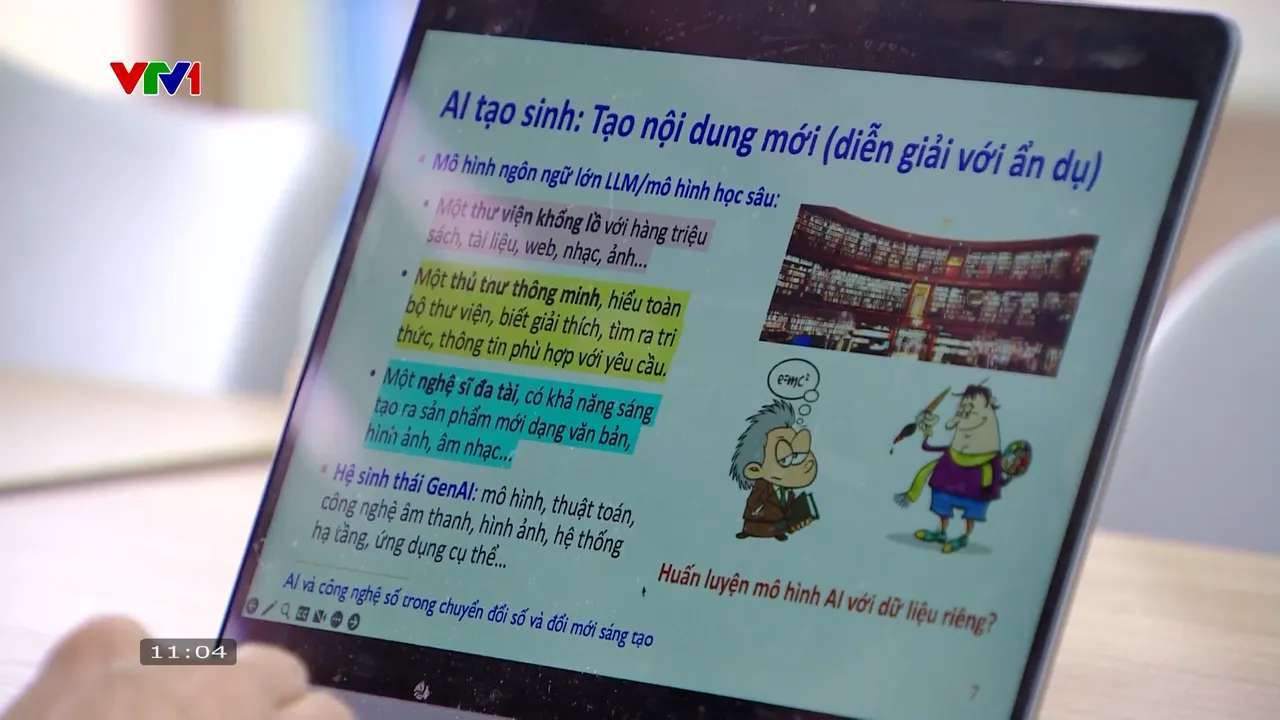 VTV1
AI tạo sinh: Tạo nội dung mới (diễn giải với ẩn dụ)
Mô hình ngôn ngữ lớn LLM/mô hình học sâu:
Một thư viện khổng lồ với hàng triệu
sách, tài liệu, web, nhạc, ảnh...
Một thủ thư thông minh, hiểu toàn
bộ thư viện, biết giải thích, tìm ra tri
thức, thông tin phù hợp với yêu cầu.
Một nghệ sĩ đa tài, có khả năng sáng
tạo ra sản phẩm mới dạng văn bản,
hình ảnh, âm nhạc...
Hệ sinh thái GenAI: mô hình, thuật toán,
công nghệ âm thanh, hình ảnh, hệ thống
hạ tầng, ứng dụng cụ thể...
e=mc²
Huấn luyện mô hình AI với dữ liệu riêng?
AI và công nghệ số trong chuyển đổi số và đổi mới sáng tạo
7
11:04